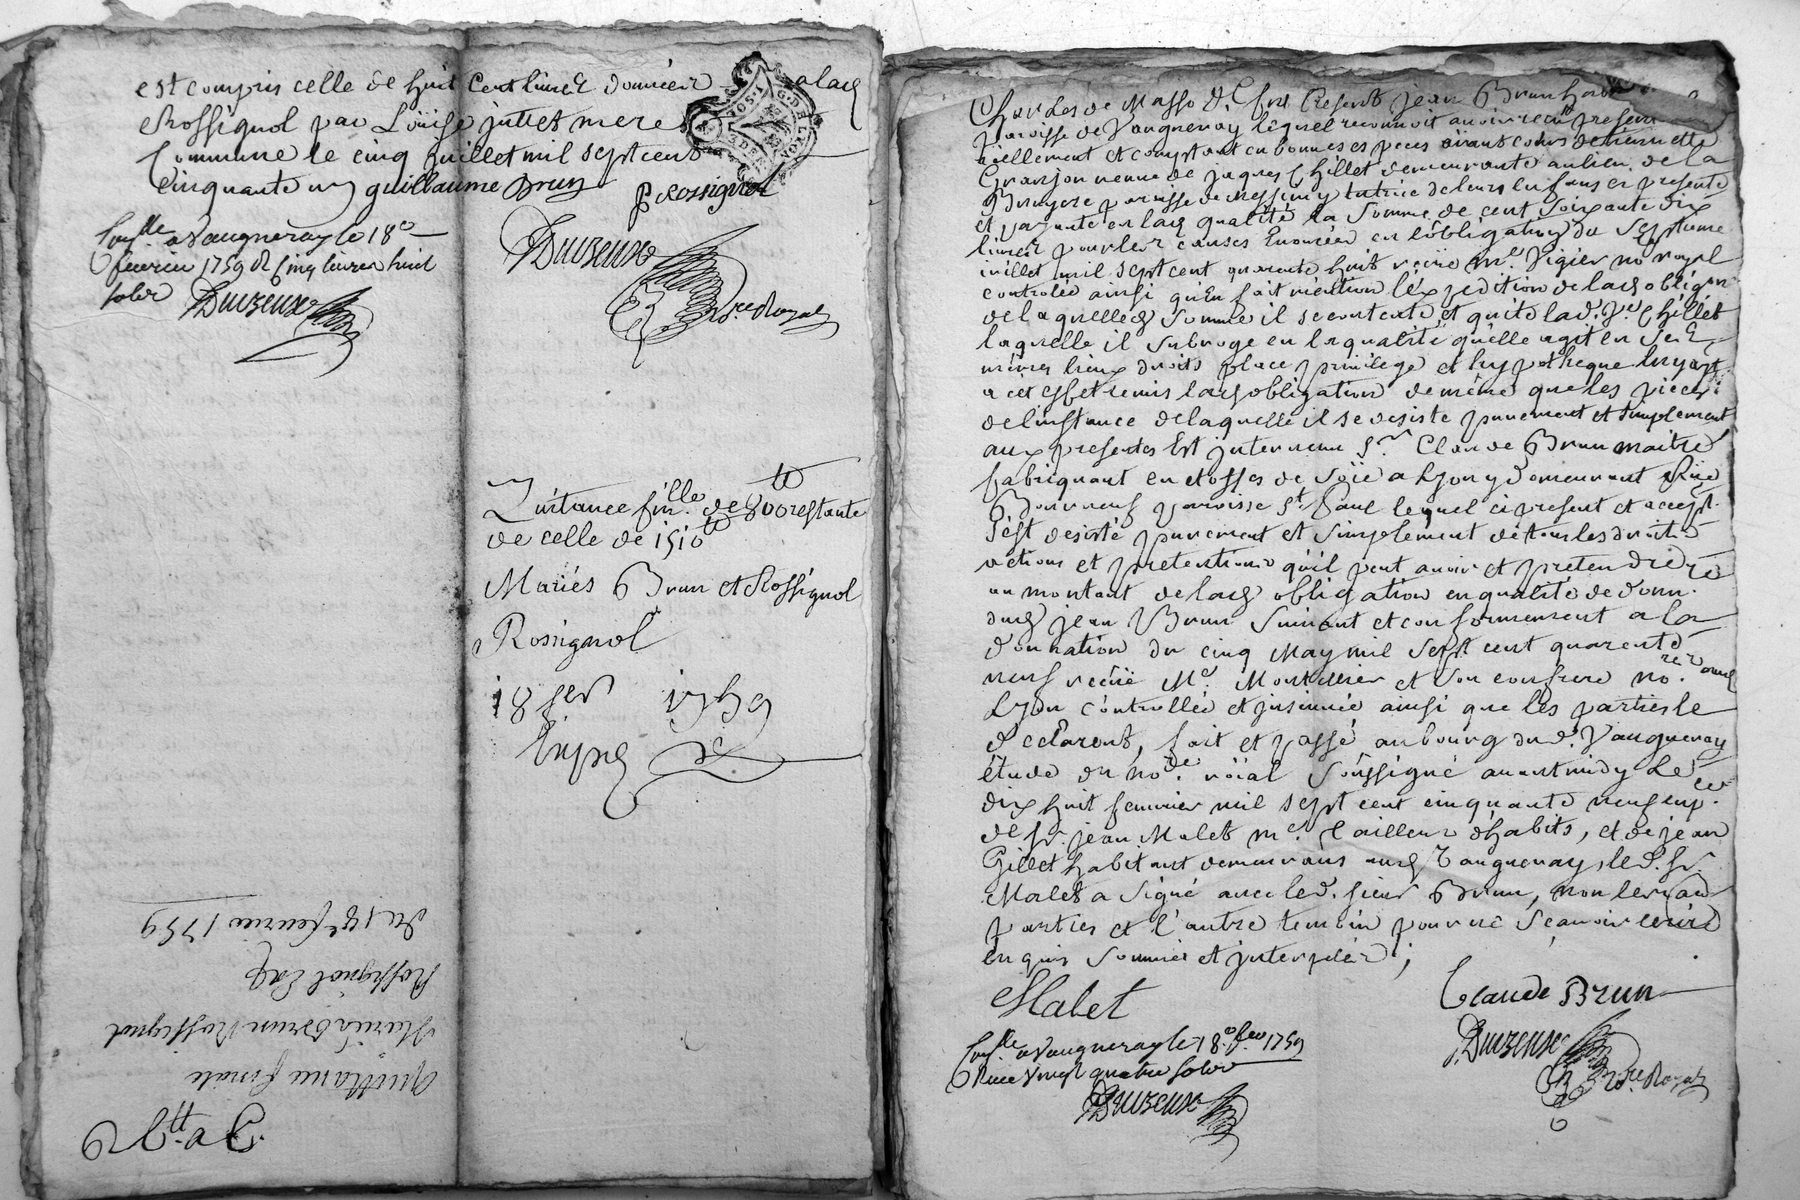 est compris celle de huit cent livres donnée a lad
Rossignol par Loüise juttet mere
commune le cinq juillet mil sept cent
cinquante un guillaume Brun
P Rossignol
Con.lle a Vaugneray le 18e
feuvrier 1759 R cinq livres huit
sols
Duizeux
Duizeux
No.re Royal
Quittance fin.lle de 800 tt restante
de celle de 1510 tt
Mariés Brun et Rossignol
Rossignol
18 fer 1759
Exped
Quittance finale
Mariés Brun Rossignol
Rossignol
Du 18e feuvrier 1759
present jean Brun
paroisse de Vaugneray lequel reconnoit avoir recu presen
réellement et comptant en bonnes especes aiant cours de
Granjon veuve de jaques Chillet demeurante au lieu de la
Bruyere paroisse de Messimy tutrice de leurs enfans ci presente
et payante en lad qualité la somme de cent soixante dix
livres pour les causes Enoncées en l'obligation du septieme
juillet mil sept cent quarante huit recue Me. Vigier no royal
controlée ainsi qu'en fait mention l'expedition de lad obligon
de laquelled somme il se contente et quite lad. ve. Chillet
laquelle il subroge en la qualité qu'elle agit en ses
mêmes lieux droits place privilege et hypotheque luy ayt
a cet effet remis lad obligation de même que les pieces
de l'instance de laquelle il se desiste purement et simplement
aux presentes Est intervenu Sr Claude Brun maitre
fabriquant en etoffes de soie a Lyon y demeurant Rüe
Bourneuf paroisse St. Paul lequel ci present et accept.
s'est desisté purement et simplement de tous les droits
actions et pretentions qu'il peut avoir et pretendre
au montant de lad obligation en qualité de donn.
dud jean Brun suivant et conformement a la
donnation du cinq May mil sept cent quarente
neuf recüe Me. et son confrere no.res aud
Lyon controllée et insinuée ainsi que les parties le
declarent, fait et passé au bourg dud. Vaugneray
étude du no.re roïal soussigné avant midy Le
dix huit feuvrier mil sept cent cinquante neuf en p.ce
de Sr. jean Malet me. tailleur d'habits, et de jean
Gillet habitant demeurans aud Vaugneray, led. Sr
Malet a signé avec led. sieur Brun, non les
parties et l'autre temoin pour ne sçavoir ecrire
en quis sommés et interpelés;
Malet
Claude Brun
Con.lle a Vaugneray le 18e fevr 1759
Recu vingt quatre sols
Duizeux
Duizeux
No.re Royal